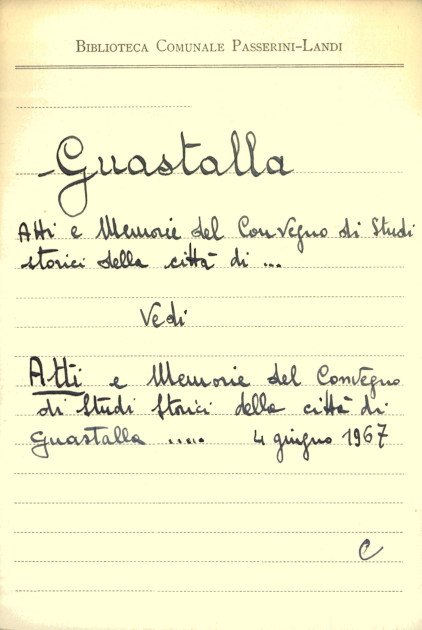 BIBLIOTECA COMUNALE PASSERINI-LANDI
- Guastalla
Atti e Memorie del Convegno di Studi
storici della città di ...
Vedi
Atti e Memorie del Convegno
di Studi Storici della città di
Guastalla ..... 4 giugno 1967
C